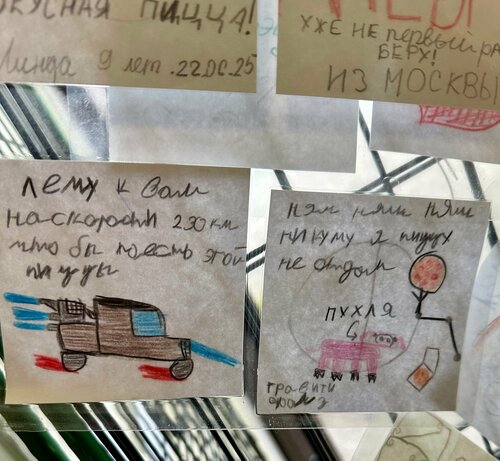 ВКУСНАЯ ПИЦЦА!
Линда 9 лет. 22.06.25
УЖЕ НЕ ПЕРВЫЙ РА
БЕРУ!
ИЗ МОСКВЫ
лечу к вам
на скорости 230 км
что бы поесть этой
пиццы
ням ням ням
никому я пиццу
не отдам
ПУХЛЯ
гравити
фолз